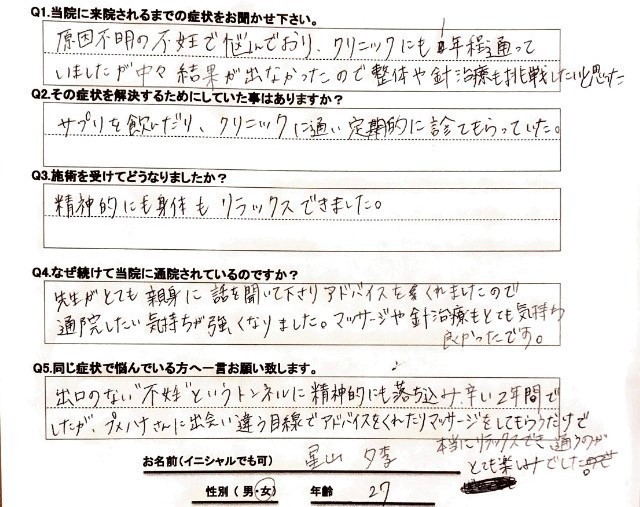 Q1.当院に来院されるまでの症状をお聞かせ下さい。
原因不明の不妊で悩んでおり、クリニックにも1年程通って
いましたが中々結果が出なかったので整体や針治療も挑戦したいと思った
Q2.その症状を解決するためにしていた事はありますか？
サプリを飲んだり、クリニックに通い定期的に診てもらっていた。
Q3.施術を受けてどうなりましたか？
精神的にも身体もリラックスできました。
Q4.なぜ続けて当院に通院されているのですか？
先生がとても親身に話を聞いて下さりアドバイスをくれましたので
通院したい気持ちが強くなりました。マッサージや針治療もとても気持ち
良かったです。
Q5.同じ症状で悩んでいる方へ一言お願い致します。
出口のない"不妊"というトンネルに精神的にも落ち込み、辛い2年間で
したが、プメハナさんに出会い違う目線でアドバイスをくれたりマッサージをしてもらうだけで
本当にリラックスでき、通うのが
とても楽しみでした。
お名前(イニシャルでも可) 星山 夕李
性別(男・女) 年齢 27